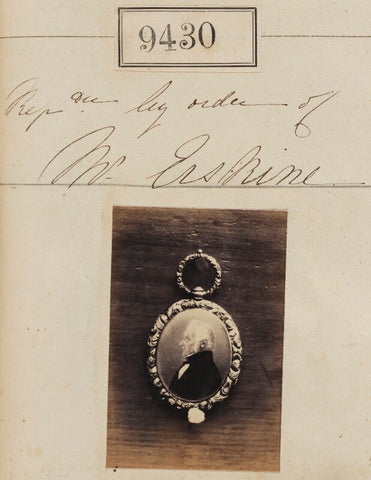 9430
Repᵈᵘ by order of
Mr Erskine